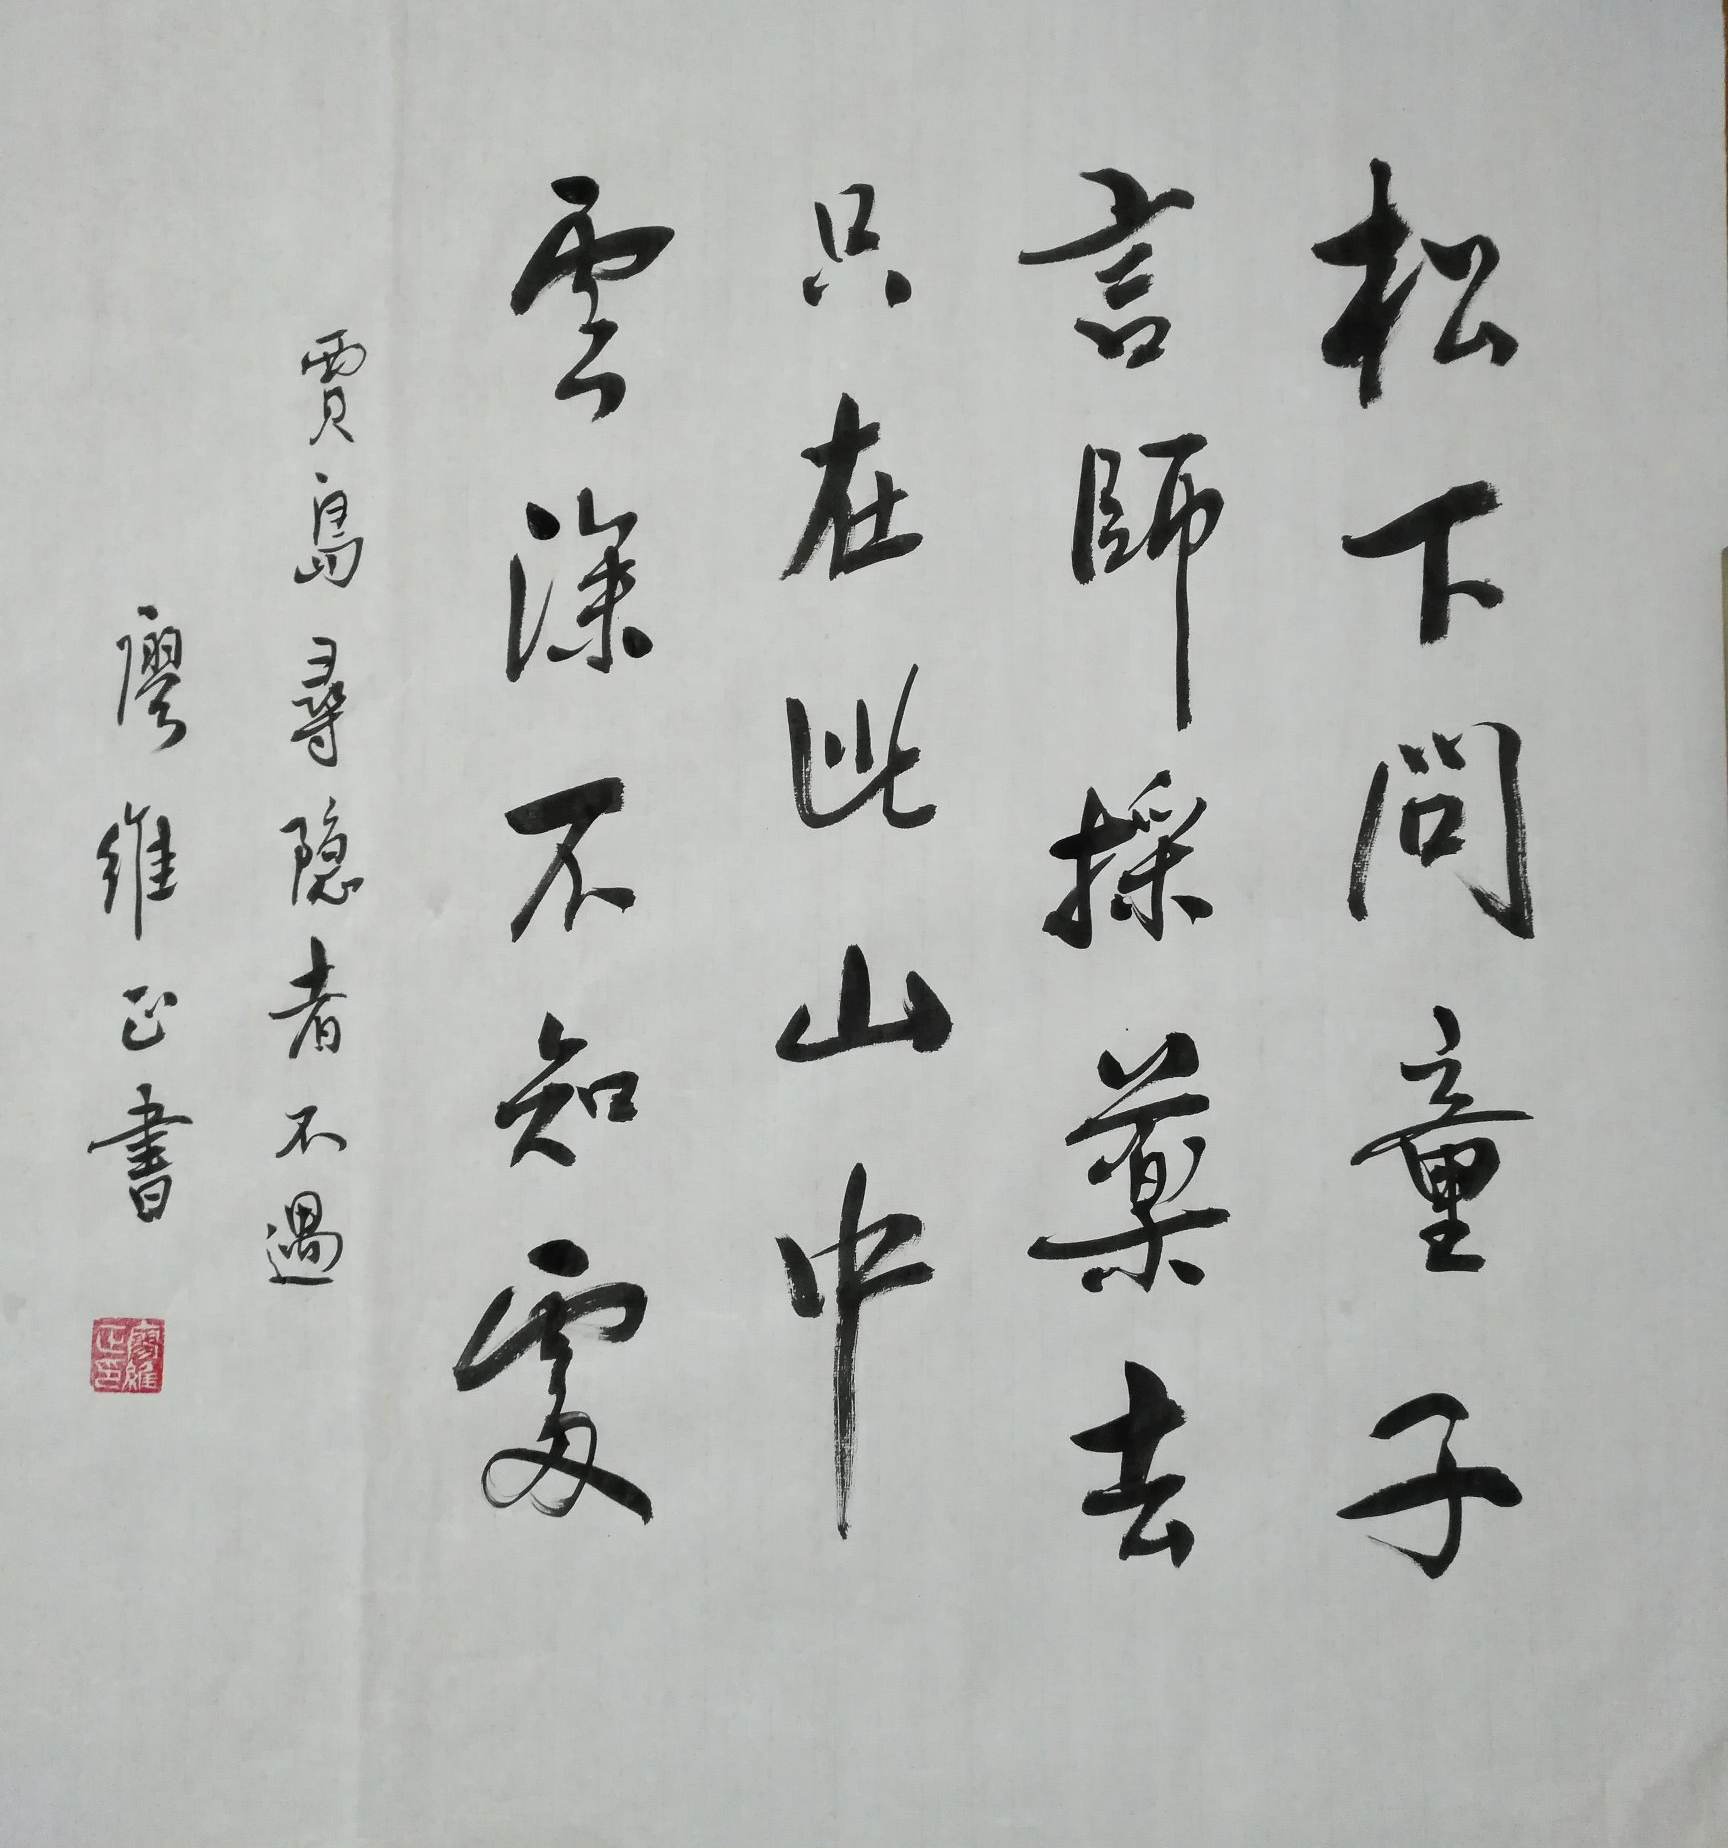 松下問童子
言師採藥去
只在此山中
雲深不知處
賈島尋隐者不遇
廖維正書
廖維正印